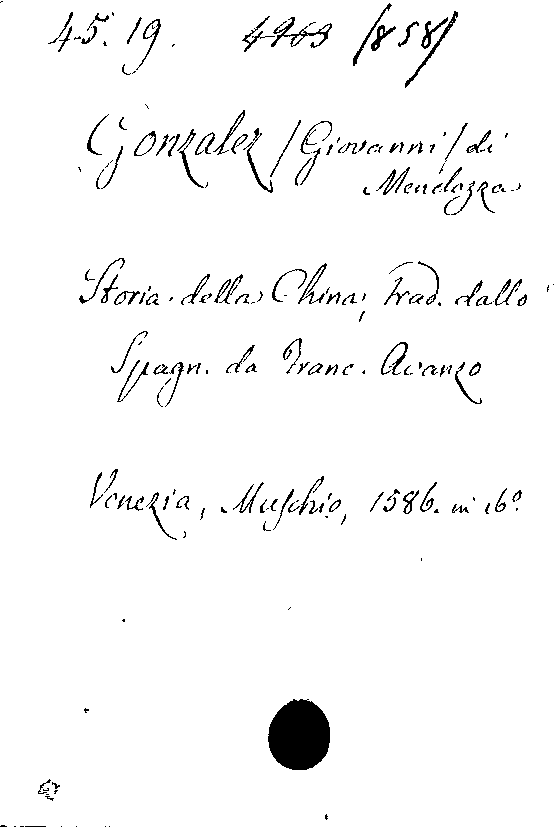 45. 19. 4963 /858/
Gonzalez /Giovanni/ di
Mendozza
Storia della China, trad. dallo
Spagn. da Franc. Avanzo
Venezia, Muschio, 1586. in 16º